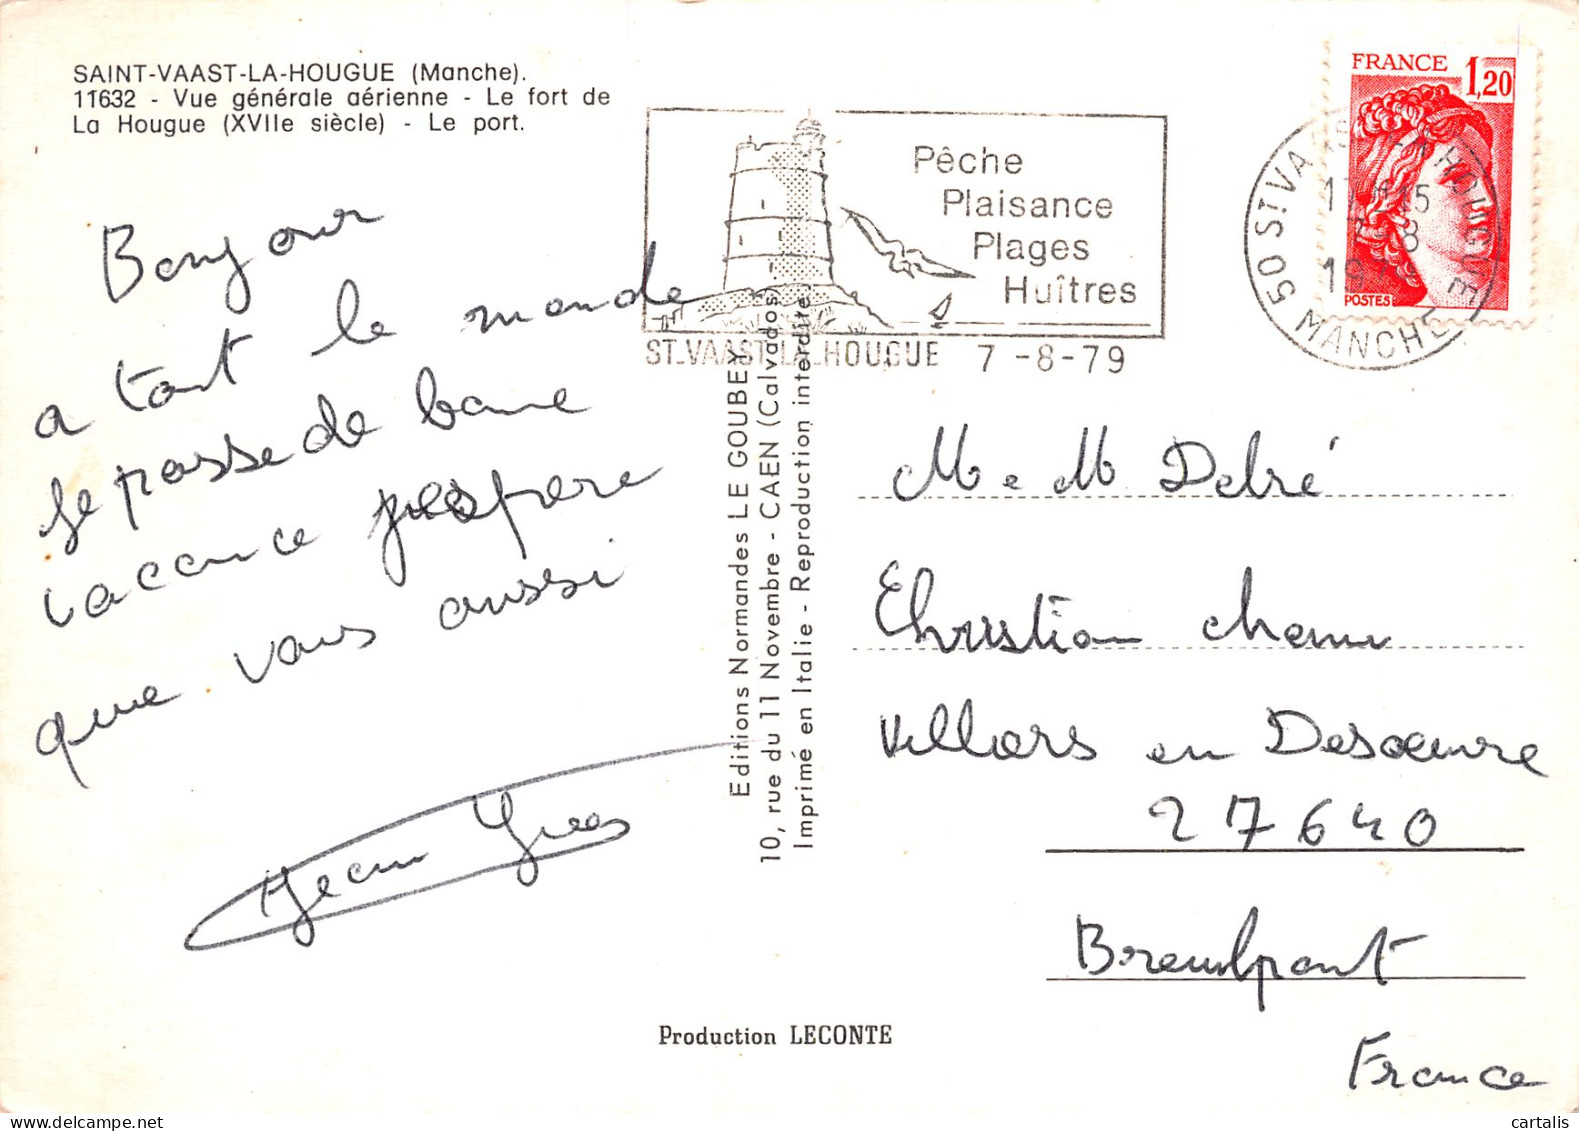 SAINT-VAAST-LA-HOUGUE (Manche).
11632 - Vue générale aérienne - Le fort de
La Hougue (XVIIe siècle) - Le port.
Bonjour
a tout le monde
Je passe de bonne
vacance j'espere
que vous aussi
Jean Yves
Pêche
Plaisance
Plages
Huîtres
ST.VAAST LA HOUGUE 7 -8-79
FRANCE 1,20
POSTES
50 ST VAAST LA HOUGUE
MANCHE
Editions Normandes LE GOUBEY
10, rue du 11 Novembre - CAEN (Calvados)
Imprimé en Italie - Reproduction interdite
M e M Debré
Christian
Villars en Desoeuvre
27640
Breuilpont
France
Production LECONTE
cartalis
delcampe.net